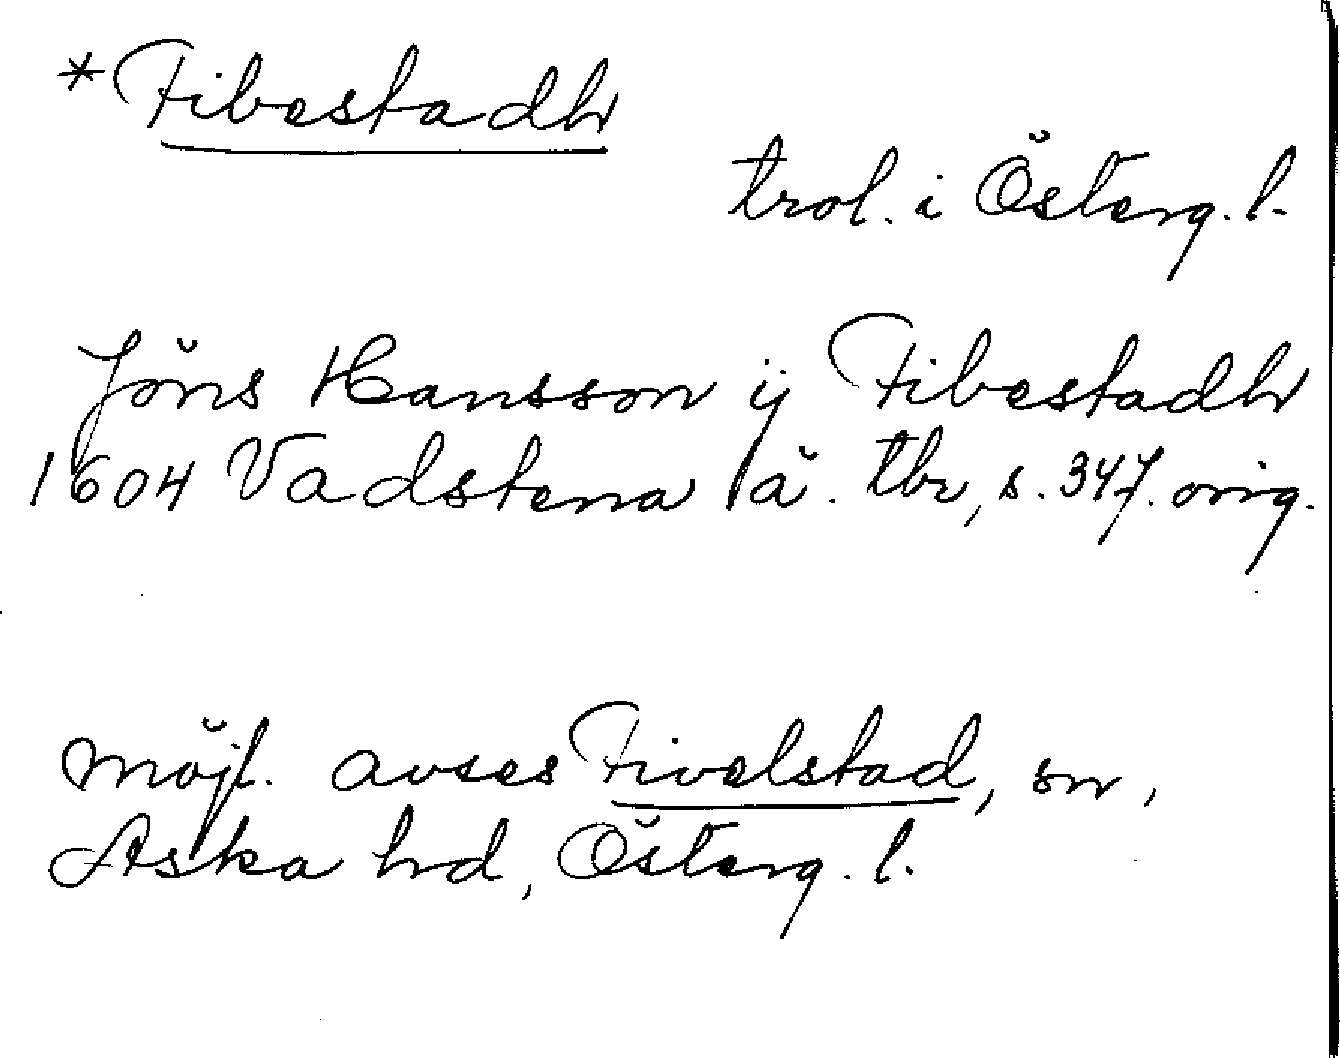 *Fibestadh
trol. i Österg. l.
Jöns Hansson ij Fibestadh
1604 Vadstena lä. tbr, s. 347. orig.
möjl. avses Fivelstad, sn,
Aska hd, Österg. l.